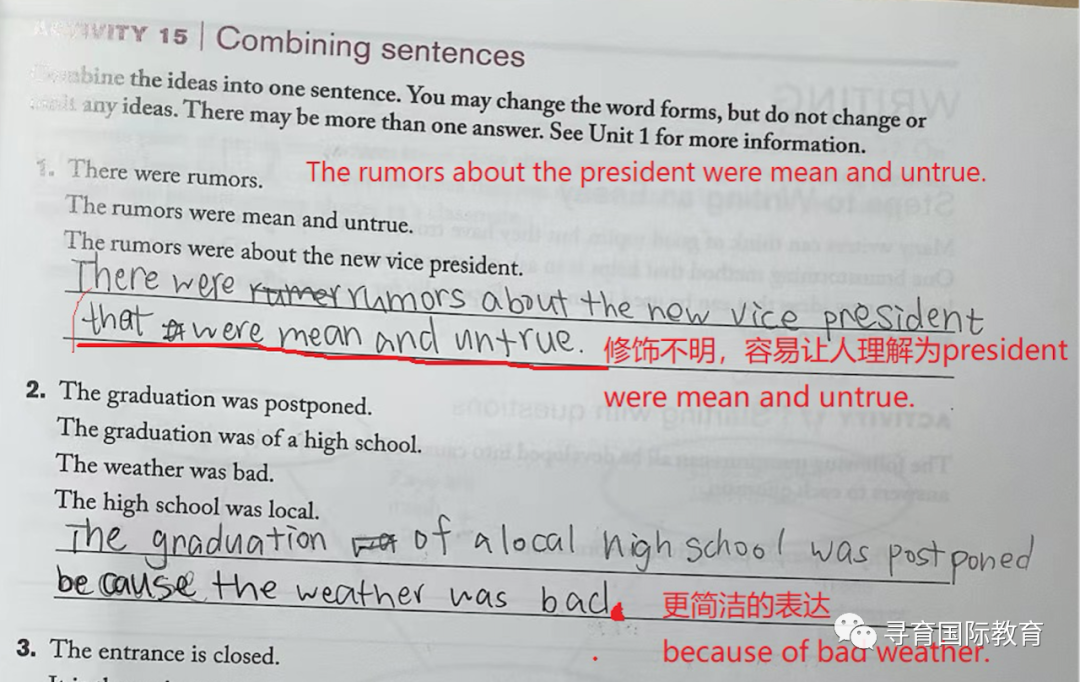 ACTIVITY 15 | Combining sentences
Combine the ideas into one sentence. You may change the word forms, but do not change or
omit any ideas. There may be more than one answer. See Unit 1 for more information.
1. There were rumors. The rumors about the president were mean and untrue.
The rumors were mean and untrue.
The rumors were about the new vice president.
There were rumors about the new vice president
that were mean and untrue. 修饰不明，容易让人理解为president
were mean and untrue.
2. The graduation was postponed.
The graduation was of a high school.
The weather was bad.
The high school was local.
The graduation of a local high school was postponed
because the weather was bad. 更简洁的表达
because of bad weather.
寻育国际教育
3. The entrance is closed.